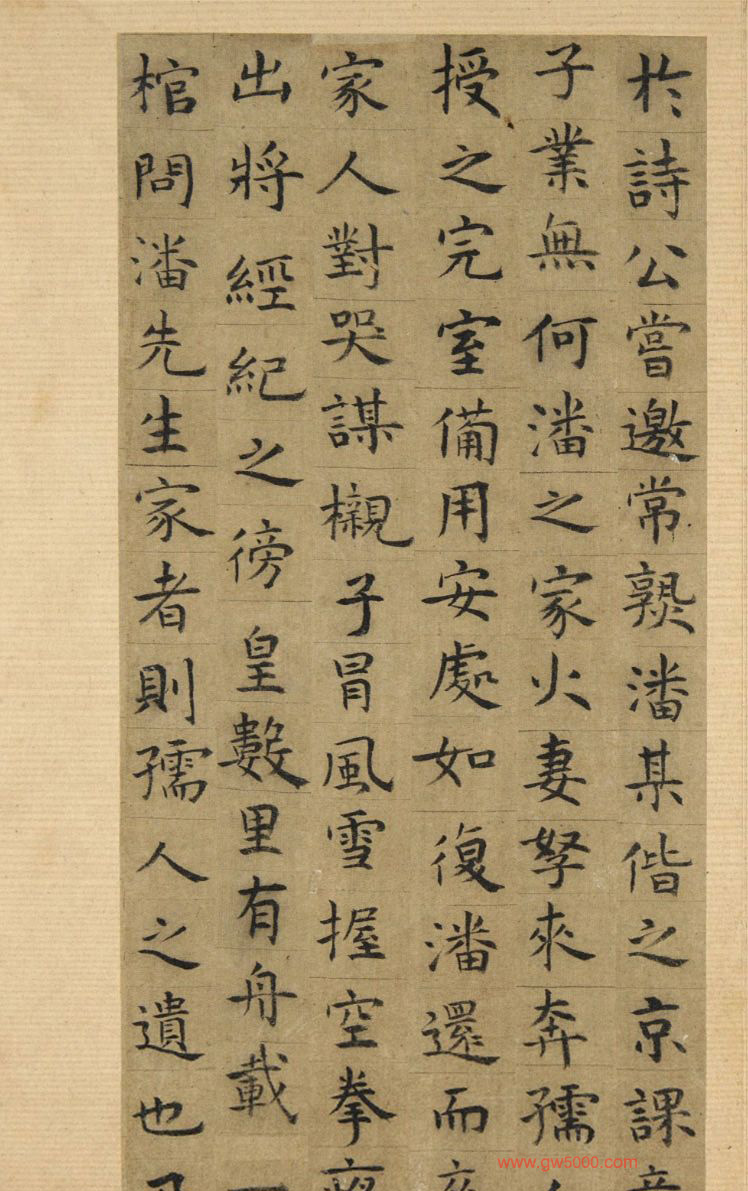 於詩公嘗邀常熟潘某偕之京課
子業無何潘之家火妻孥來奔孺
授之完室備用安處如復潘還而
家人對哭謀櫬子冒風雪握空拳
出將經紀之傍皇數里有舟載
棺問潘先生家者則孺人之遺也
www.gw5000.com